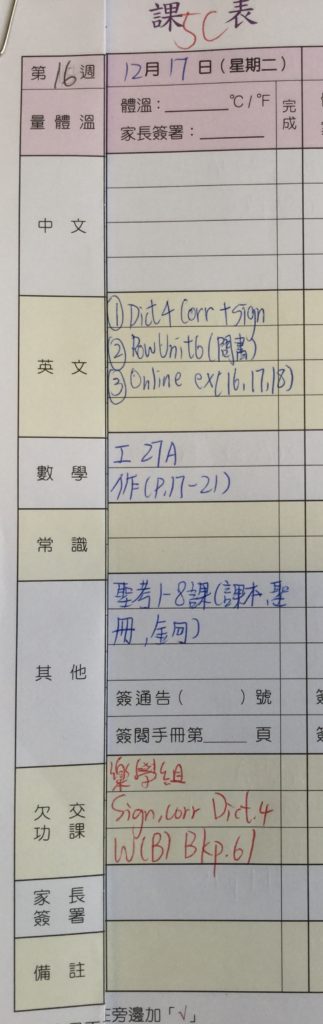 課 表
5C
第16週
12月17日(星期二)
量體溫
體溫：______°C / °F
家長簽署：______
完成
中 文
英 文
① Dict 4 Corr + sign
② Unit 6
③ Online ex(16,17,18)
數 學
工 27A
作(P.17-21)
常 識
其 他
聖考1-8課(課本,聖
冊,金句)
簽通告( )號
簽閱手冊第____頁
欠 交
功 課
樂學組
Sign, corr Dict.4
W(B) Bkp.61
家 長
簽 署
備 註
在旁邊加「√」